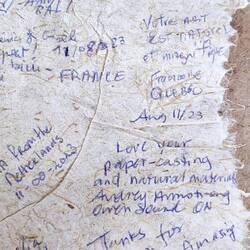 BALI
11/08/23
FRANCE
VOTRE ART
EST NATUREL
ET magnifique
Francine
QUEBEC
Aug 11/23
From the
Netherlands
11-08-2023
Love your
paper-casting
and natural materials
Audrey Armstrong
Owen Sound ON
Thanks for
Amazing